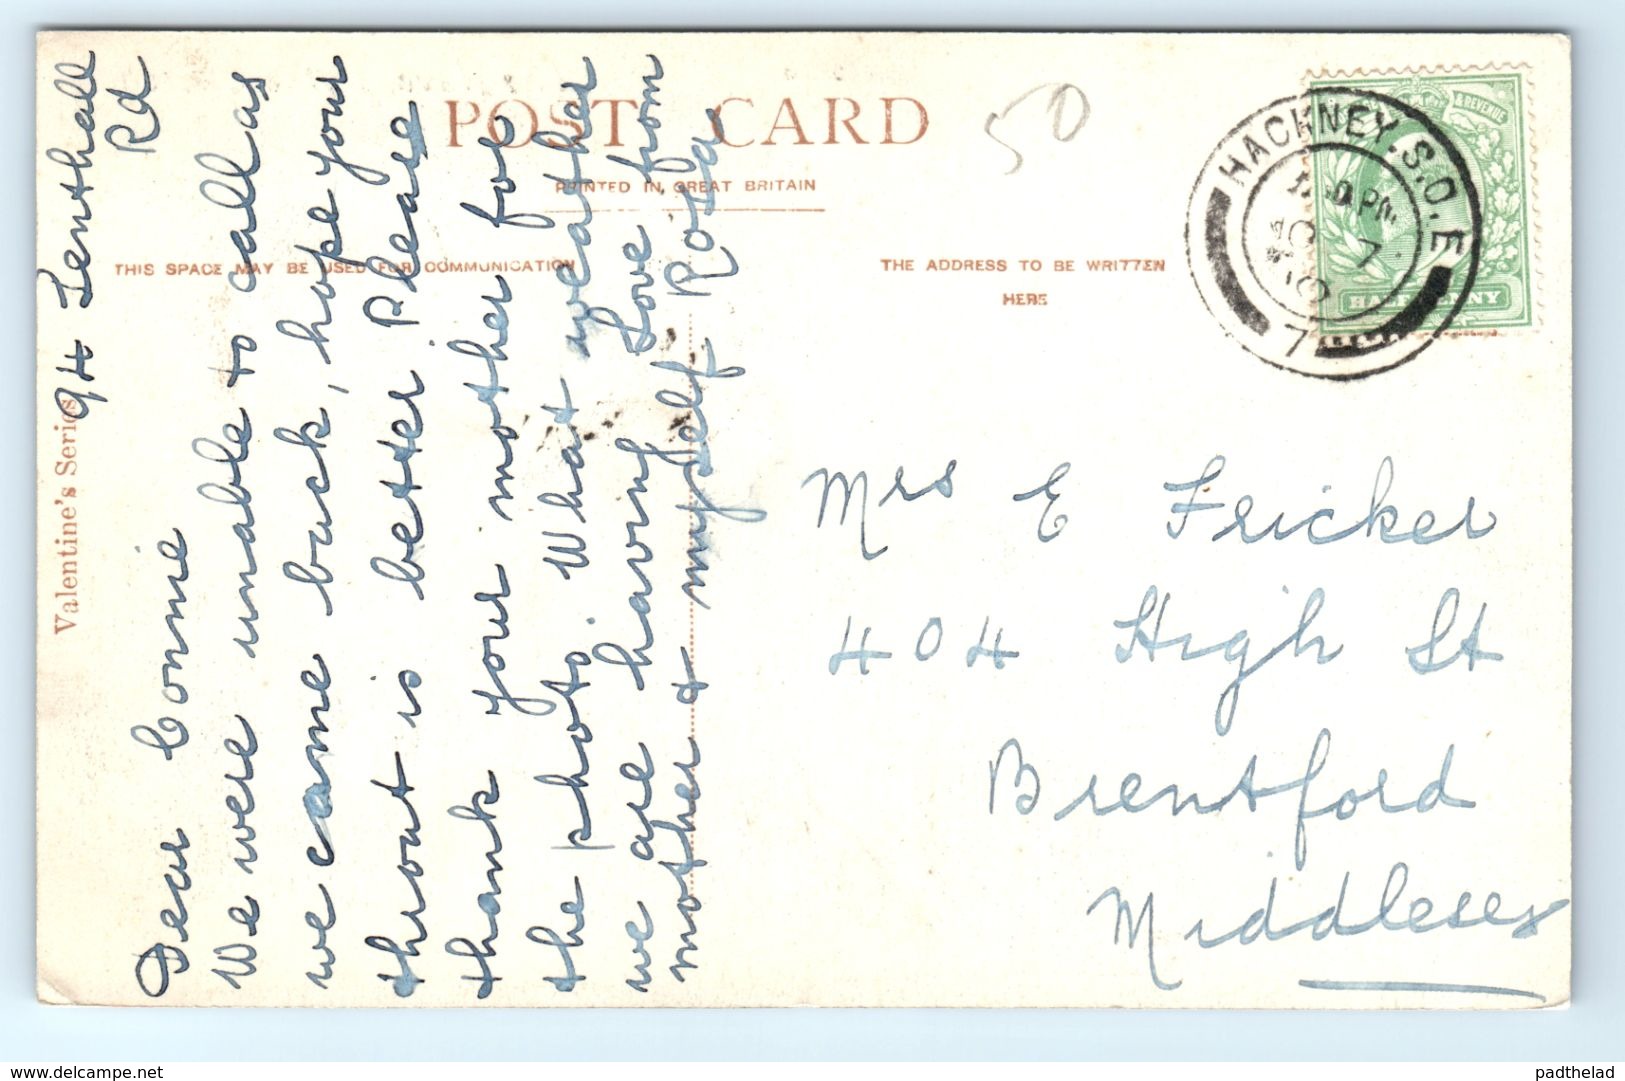 94 Lenthall
Rd
Dear Connie
We were unable to call as
we came back, hope your
throat is better Please
thank your mother for
the photo. What weather
we are having Love from
mother & myself Rosa
Valentine's Series
POST CARD
PRINTED IN GREAT BRITAIN
THIS SPACE MAY BE USED FOR COMMUNICATION
THE ADDRESS TO BE WRITTEN
HERE
50
HACKNEY. S.O. E
7
& REVENUE
HALFPENNY
Mrs E Fricker
404 High St
Brentford
Middlesex
Delcampe.net
padthelad